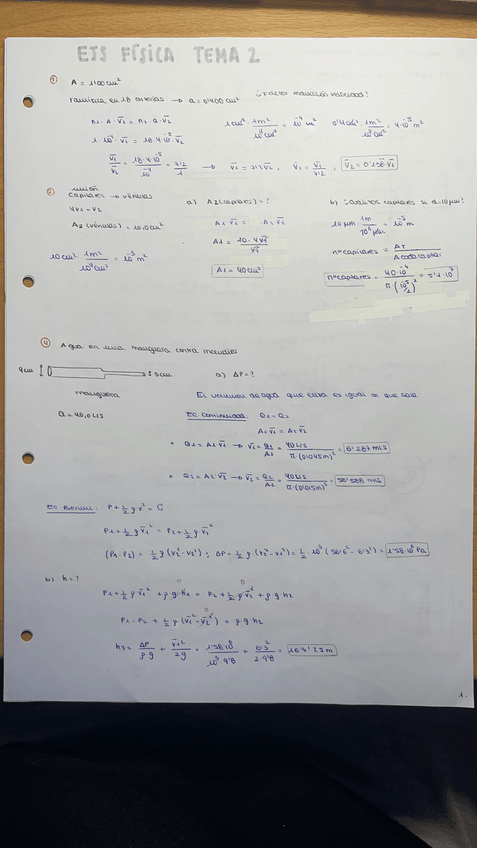 EJS FÍSICA TEMA 2
① A = 1'00 cm²
ramifica en 18 arterias → a = 0'400 cm² ¿Factor reducción velocidad?
n₁ · A · v̄₁ = n₂ · a · v̄₂
1 cm² · 1m²/10⁴cm² = 10⁻⁴ m² 0'4 cm² · 1m²/10⁴cm² = 4·10⁻⁵ m²
1 · 10⁻⁴ · v̄₁ = 18 · 4·10⁻⁵ · v̄₂
v̄₁/v̄₂ = 18·4·10⁻⁵/10⁻⁴ = 7'2/1 → v̄₁ = 7'2 v̄₂ ; v̄₂ = v̄₁/7'2 ; v̄₂ = 0'138·v̄₁
② unión
capilares → vénulas a) A₁(capilares) = ? b) ¿Cuántos capilares si d=10μm?
4v₁ = v₂
A₂ (vénulas) = 10,0 cm² A₁ v̄₁ = A₂ v̄₂
10 μm · 1m/10⁶ μm = 10⁻⁵ m
10 cm² · 1m²/10⁴cm² = 10⁻³ m²
A₁ = 10·4v̄₁/v̄₁
nº capilares = AT/A cada capilar
A₁ = 40 cm²
nº capilares = 40·10⁻⁴/π(10⁻⁵/2)² = 5'1·10⁷
④ Agua en una manguera contra incendios
9cm 3cm a) ΔP = ?
manguera El volumen de agua que entra es igual al que sale
Q = 40,0 L/s Ec continuidad: Q₁ = Q₂
A₁ v̄₁ = A₂ v̄₂
• Q₁ = A₁ v̄₁ → v̄₁ = Q₁/A₁ = 40 L/s/π·(0'045m)² = 6'287 m/s
• Q₂ = A₂ v̄₂ → v̄₂ = Q₂/A₂ = 40 L/s/π·(0'015m)² = 56'588 m/s
Ec Bernulli: P + ½ ρ v² = C
P₁ + ½ ρ v̄₁² = P₂ + ½ ρ v̄₂²
(P₁ - P₂) = ½ ρ (v₂² - v₁²) ; ΔP = ½ ρ (v₂² - v₁²) = ½ · 10³ (56'6² - 6'3²) = 1'58·10⁶ Pa
b) h = ?
P₁ + ½ ρ v̄₁² + ρ·g·h₁ = P₂ + ½ ρ v̄₂² + ρ·g·h₂
0
P₁ - P₂ + ½ ρ (v̄₁² - v̄₂²) = ρ·g·h₂
0
h₂ = ΔP/ρ·g + v̄₁²/2g = 1'58·10⁶/10³·9'8 + 6'3²/2·9'8 = 163'25 m
1.